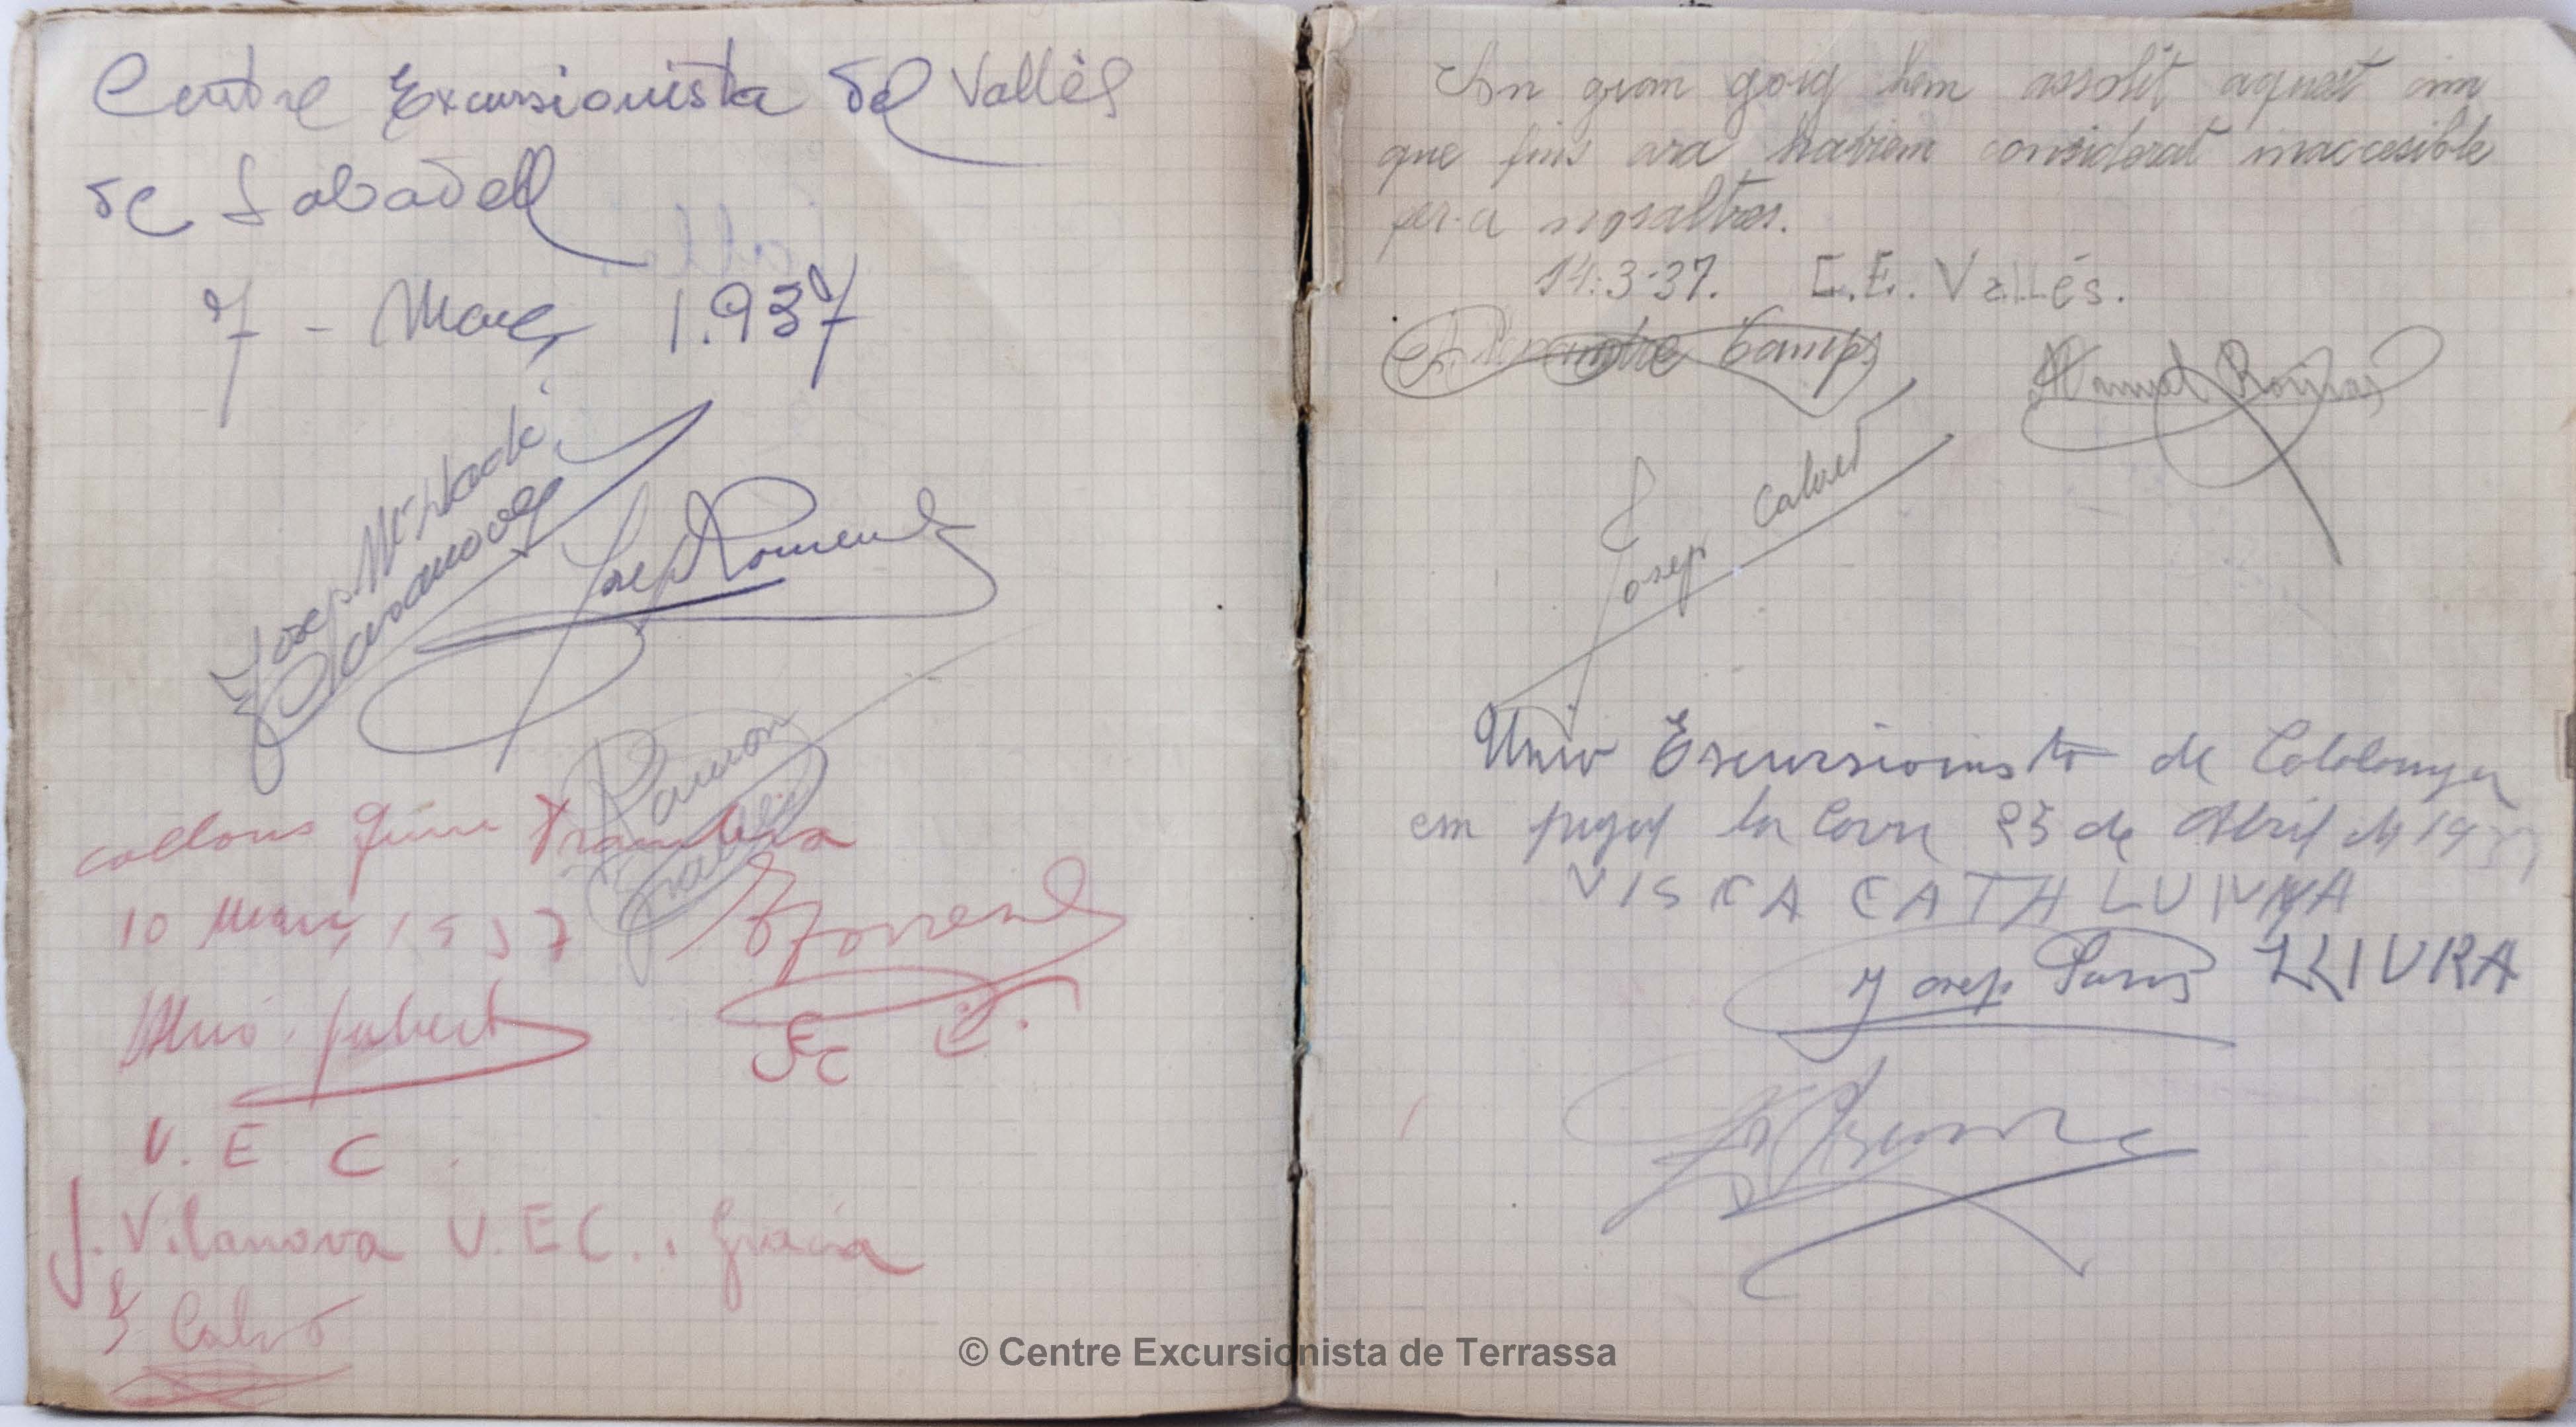 Centre Excursionista del Vallès
de Sabadell
7 - Març 1.937
Josep Mª
Casanovas
Josep Romeu
Ramon
collons quina tramuntana
10 Març 1937
Torres
Gubert
E C
U. E. C.
J. Vilanova U.E.C. Gracia
Calvó
Amb gran goig hem assolit aquest cim
que fins ara haviem considerat inaccesible
per-a nosaltres.
14-3-37. C.E. Vallés.
Camps
Manuel Rovira
Josep Calvet
Unio Escursionista de Catalonya
em pujat la Cova 25 de Abril de 1937
VISCA CATALUNYA
Josep Parés LLIURA
© Centre Excursionista de Terrassa